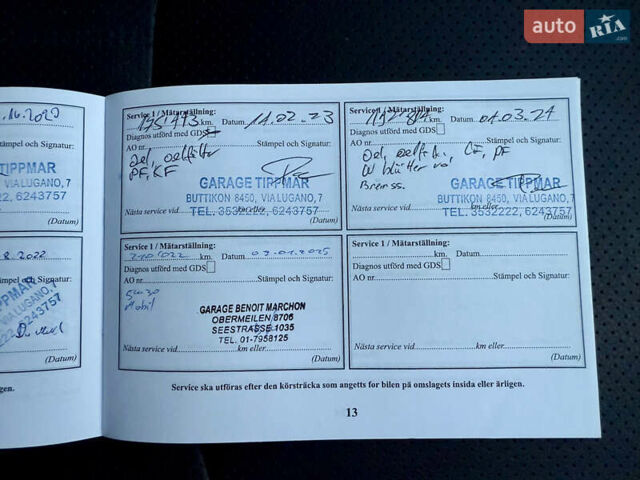 auto RIA .com
.16.2020
Stämpel och Signatur:
TIPPMAR
VIALUGANO, 7
222, 6243757
(Datum)
8.2022
Stämpel och Signatur:
TIPPMAR
VIALUGANO, 7
222, 6243757
(Datum)
gen.
Service 1 / Mätarställning:
175'173 km. Datum 11.02.23
Diagnos utförd med GDS
AO nr Stämpel och Signatur:
Oel, oelfilter
PF, KF
GARAGE TIPPMAR
BUTTIKON 8450, VIALUGANO, 7
TEL. 3532222, 6243757
Nästa service vid km eller
(Datum)
Service 1 / Mätarställning:
km. Datum 01.03.24
Diagnos utförd med GDS
AO nr. Stämpel och Signatur:
Oel, PF
W blätter
Bremss.
GARAGE TIPPMAR
BUTTIKON 8450, VIALUGANO, 7
TEL. 3532222, 6243757
Nästa service vid km eller
(Datum)
Service 1 / Mätarställning:
210'022 km. Datum 07.01.2025
Diagnos utförd med GDS
AO nr Stämpel och Signatur:
5w30
Mobil
GARAGE BENOIT MARCHON
OBERMEILEN 8706
SEESTRASSE 1035
TEL. 01-7958125
Nästa service vid km eller
(Datum)
Service 1 / Mätarställning:
km. Datum
Diagnos utförd med GDS
AO nr. Stämpel och Signatur:
Nästa service vid km eller
(Datum)
Service ska utföras efter den körsträcka som angetts for bilen på omslagets insida eller årligen.
13